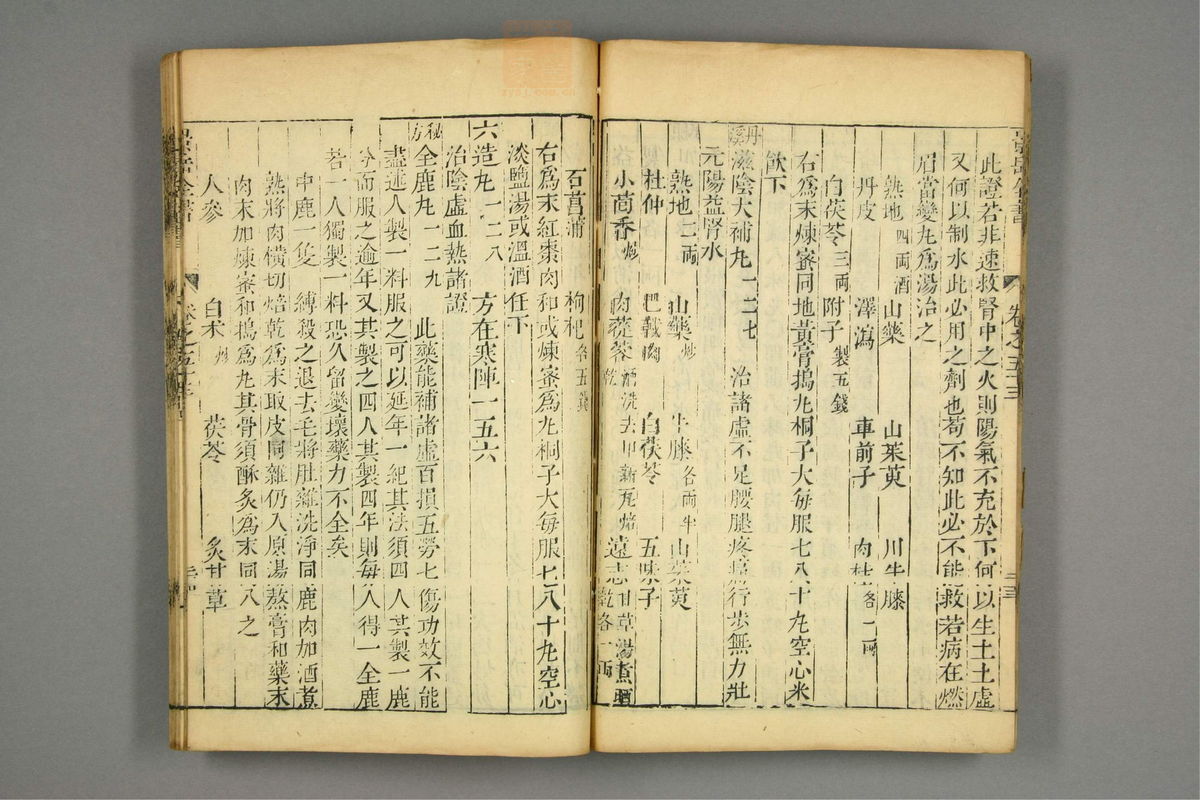 此證若非速救腎中之火則陽氣不充於下何以生土土虛
又何以制水此必用之劑也苟不知此必不能救若病在燃
眉當變丸爲湯治之
熟地四兩酒 山藥 山茱萸 川牛膝
丹皮 澤瀉 車前子 肉桂各一兩
白茯苓三兩 附子製五錢
右爲末煉蜜同地黃膏搗丸桐子大每服七八十丸空心米
飲下
丹溪滋陰大補丸一二七 治諸虛不足腰腿疼痛行步無力壯
元陽益腎水
熟地二兩 山藥炒 牛膝各兩半 山茱萸
杜仲 巴戟肉 白茯苓 五味子
小茴香炒 肉蓯蓉酒洗去甲新瓦焙乾 遠志甘草湯煮晒乾各一兩
石菖蒲 枸杞各五錢
右爲末紅棗肉和或煉蜜爲丸桐子大每服七八十丸空心
淡鹽湯或溫酒任下
六造丸一二八 方在寒陣一五六
治陰虛血熱諸證
秘方全鹿丸一二九 此藥能補諸虛百損五勞七傷功效不能
盡述人製一料服之可以延年一紀其法須四人共製一鹿
分而服之逾年又共製之四人共製四年則每人得一全鹿
若一人獨製一料恐久留變壞藥力不全矣
中鹿一隻 縛殺之退去毛將肚雜洗淨同鹿肉加酒煮
熟將肉橫切焙乾爲末取皮同雜仍入原湯熬膏和藥末
肉末加煉蜜和搗爲丸其骨須酥炙爲末同入之
人參 白朮炒 茯苓 炙甘草